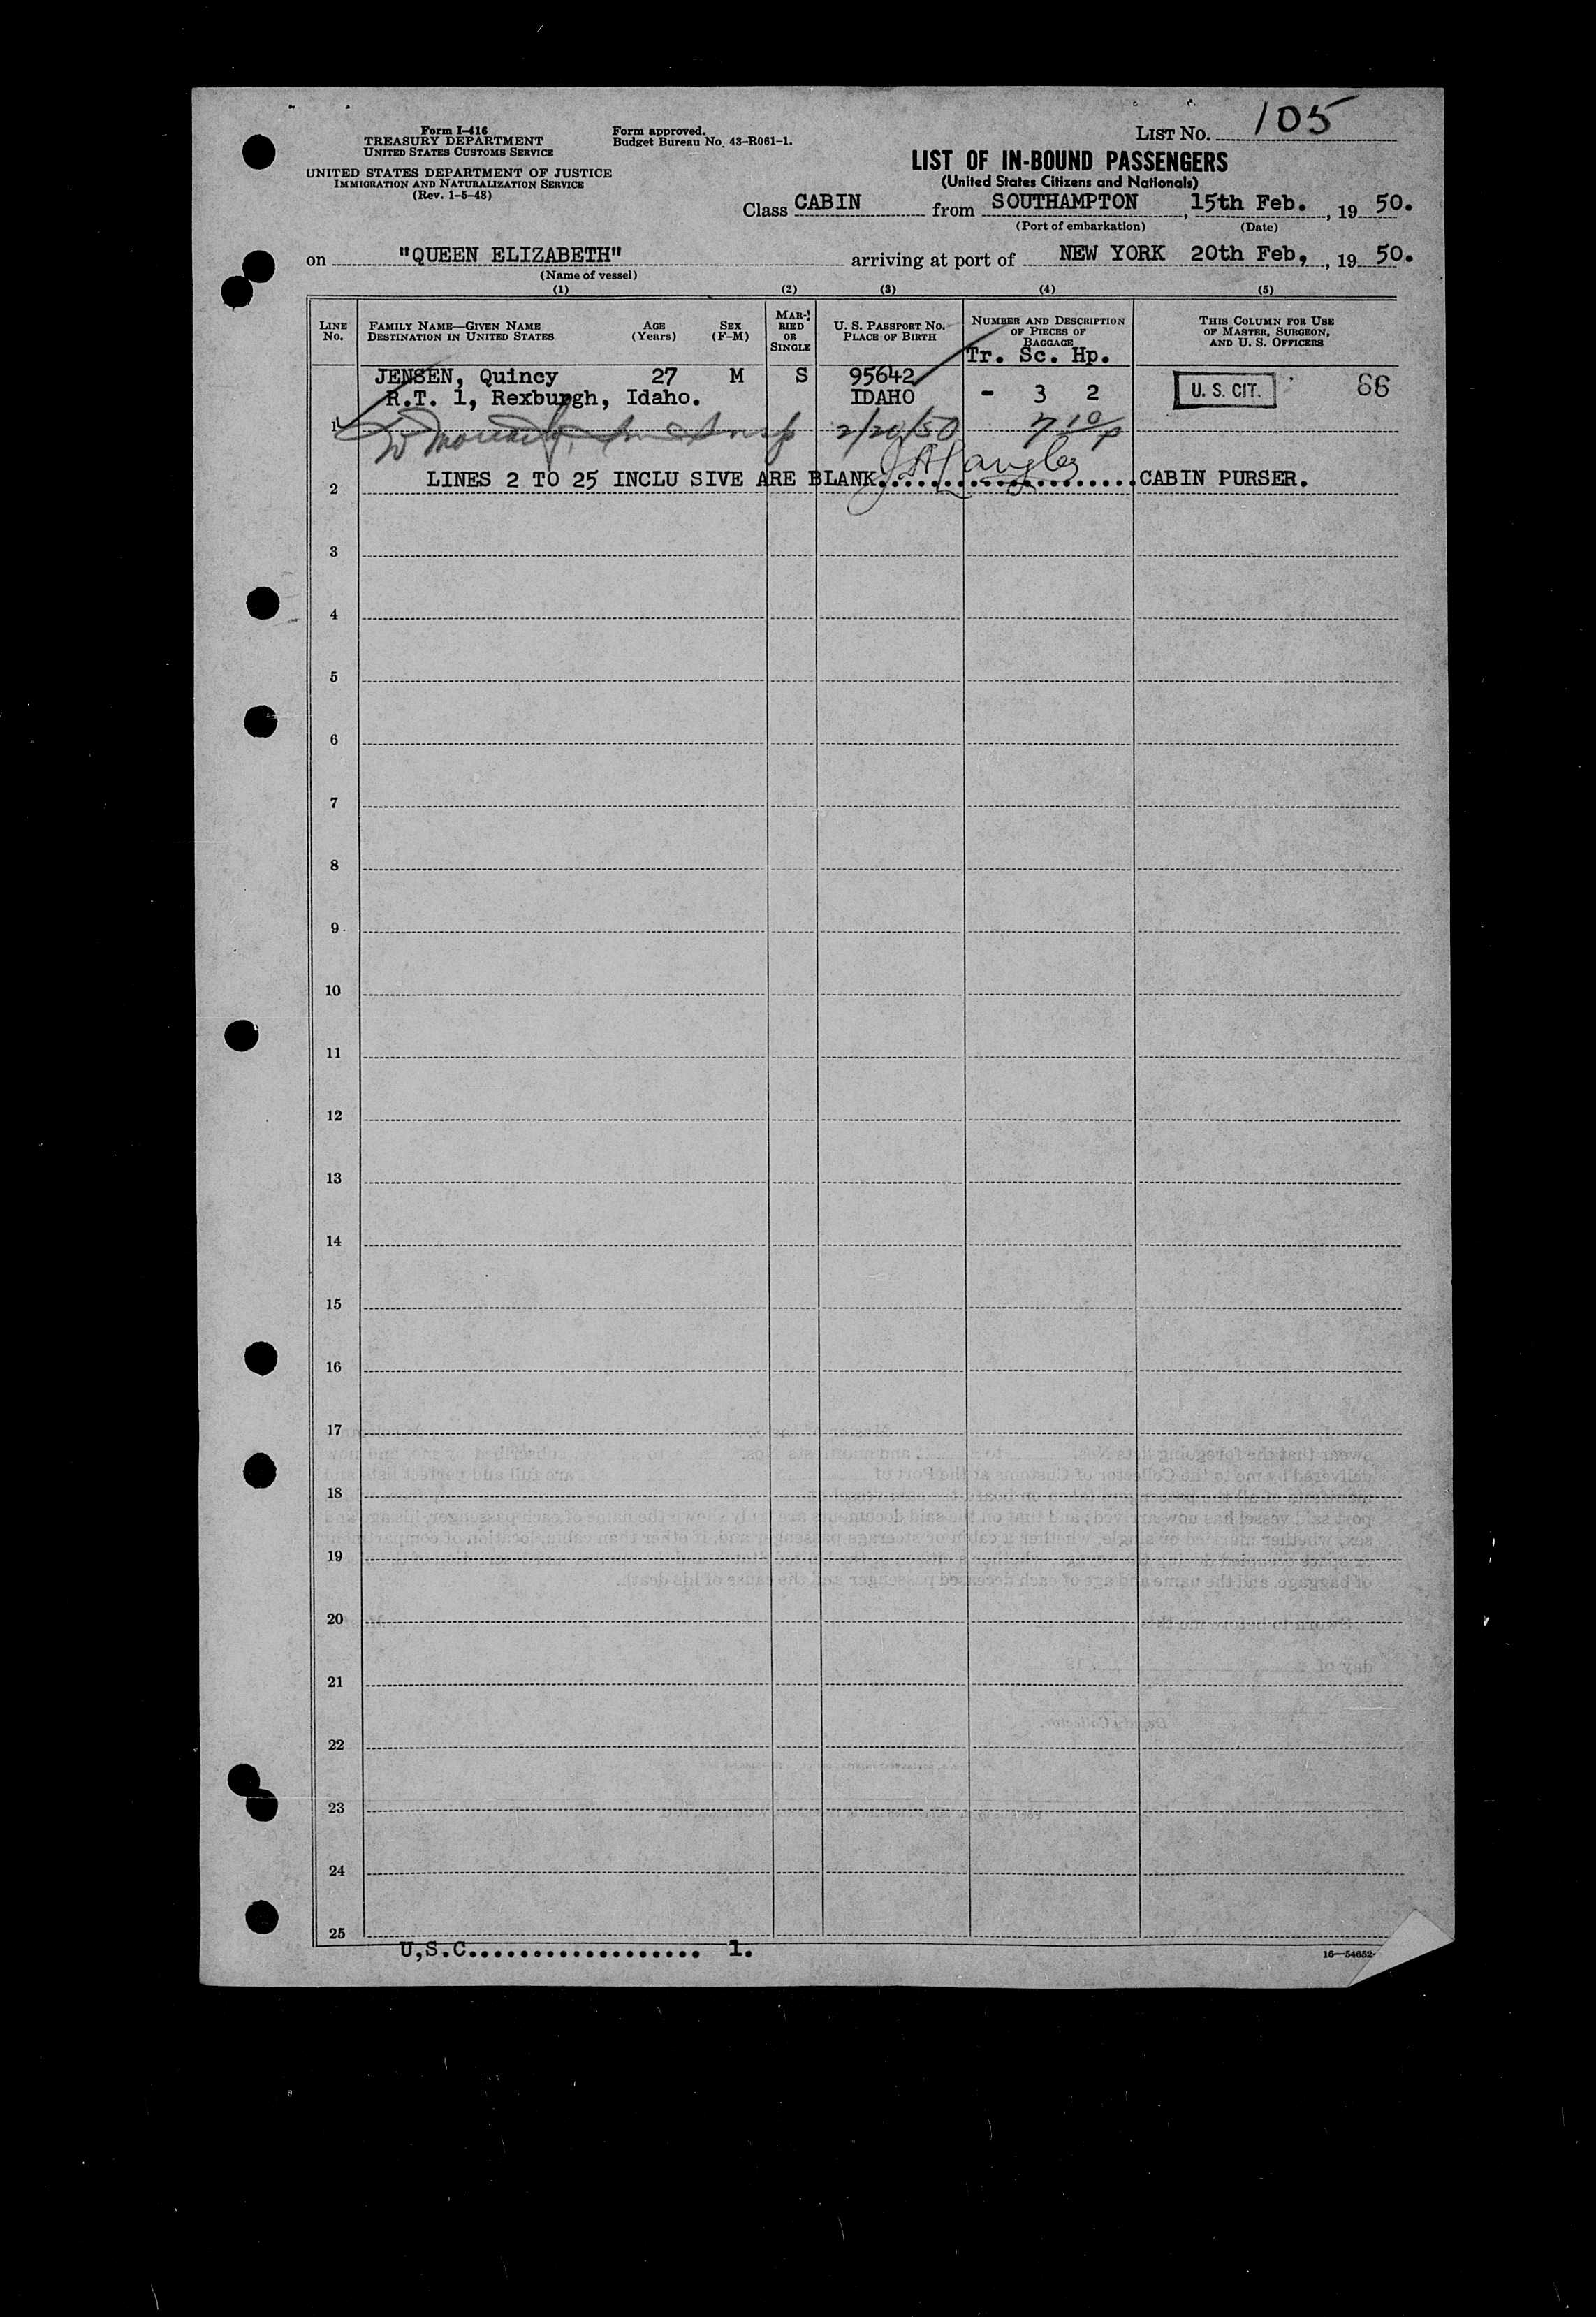 Form I-416
TREASURY DEPARTMENT
UNITED STATES CUSTOMS SERVICE
UNITED STATES DEPARTMENT OF JUSTICE
IMMIGRATION AND NATURALIZATION SERVICE
(Rev. 1-5-48)
Form approved.
Budget Bureau No. 43-R061-1.
LIST NO. 105
LIST OF IN-BOUND PASSENGERS
(United States Citizens and Nationals)
Class CABIN from SOUTHAMPTON, 15th Feb., 19 50.
(Port of embarkation) (Date)
on "QUEEN ELIZABETH" arriving at port of NEW YORK 20th Feb, , 19 50.
(Name of vessel)
(1) (2) (3) (4) (5)
LINE NO.
FAMILY NAME—GIVEN NAME
DESTINATION IN UNITED STATES
AGE (Years)
SEX (F-M)
MARRIED OR SINGLE
U. S. PASSPORT NO.
PLACE OF BIRTH
NUMBER AND DESCRIPTION OF PIECES OF BAGGAGE
Tr. Sc. Hp.
THIS COLUMN FOR USE OF MASTER, SURGEON, AND U. S. OFFICERS
JENSEN, Quincy 27 M S 95642
R.T. 1, Rexburgh, Idaho. IDAHO - 3 2 U. S. CIT. 66
1 2/20/50
2 LINES 2 TO 25 INCLU SIVE ARE BLANK....................CABIN PURSER.
3
4
5
6
7
8
9
10
11
12
13
14
15
16
17
18
19
20
21
22
23
24
25
U,S.C.................. 1.
16—54652-